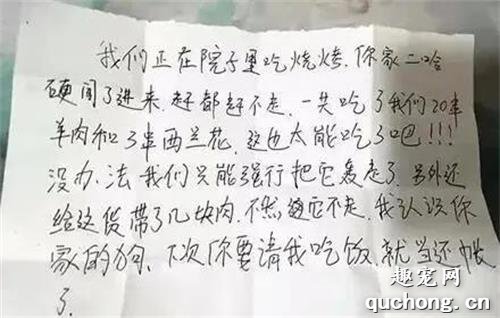 我们正在院子里吃烧烤.你家二哈
硬闯了进来.赶都赶不走.一共吃了我们20串
羊肉和3串西兰花.这也太能吃了吧!!!
没办、法我们只能强行把它轰走了.另外还
给这货带了几块肉.不然撵它不走.我认识你
家的狗、下次你要请我吃饭.就当还帐
了.
趣宠网
quchong.cn